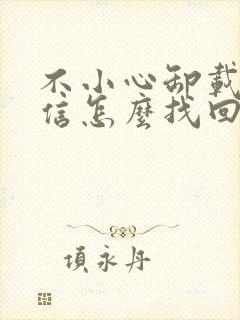 不小心卸載
信怎麼找回
項永丹